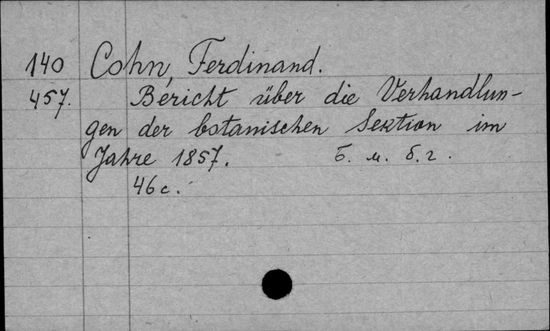 140 Cohn, Ferdinand.
457. Bericht über die Verhandlun-
gen der botanischen Sektion im
Jahre 1857. б. м. б. г.
46 с.